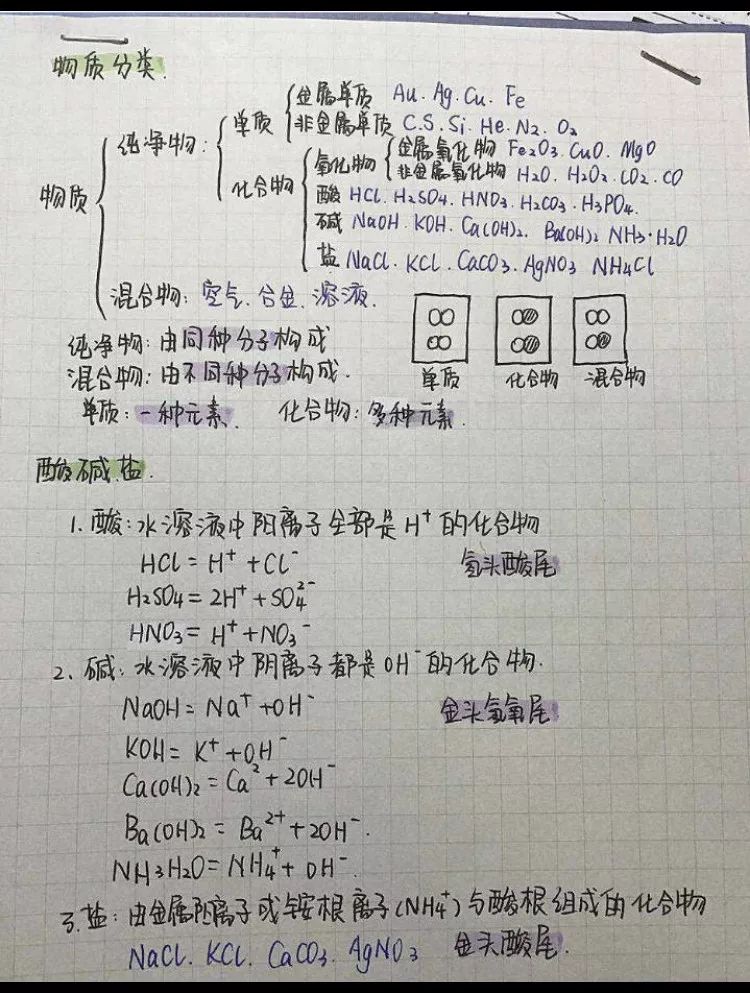 物质分类.
金属单质 Au. Ag. Cu. Fe
单质
非金属单质 C. S. Si. He. N₂. O₂
纯净物:
金属氧化物 Fe₂O₃. CuO. MgO
氧化物
非金属氧化物 H₂O. H₂O₂. CO₂. CO
化合物
物质
酸 HCl. H₂SO₄. HNO₃. H₂CO₃. H₃PO₄.
碱 NaOH. KOH. Ca(OH)₂. Ba(OH)₂ NH₃·H₂O
盐 NaCl. KCl. CaCO₃. AgNO₃ NH₄Cl
混合物: 空气. 合金. 溶液.
纯净物: 由同种分子构成
混合物: 由不同种分子构成.
单质 化合物 混合物
单质: 一种元素. 化合物: 多种元素.
酸碱盐.
1. 酸: 水溶液中阳离子全部是H⁺的化合物
HCl = H⁺ + Cl⁻ 氢头酸尾
H₂SO₄ = 2H⁺ + SO₄²⁻
HNO₃ = H⁺ + NO₃⁻
2. 碱: 水溶液中阴离子都是OH⁻的化合物.
NaOH = Na⁺ + OH⁻ 金头氢氧尾
KOH = K⁺ + OH⁻
Ca(OH)₂ = Ca² + 2OH⁻
Ba(OH)₂ = Ba²⁺ + 2OH⁻.
NH₃H₂O = NH₄⁺ + OH⁻.
3. 盐: 由金属阳离子或铵根离子(NH₄⁺)与酸根组成的化合物
NaCl. KCl. CaCO₃. AgNO₃ 金头酸尾.